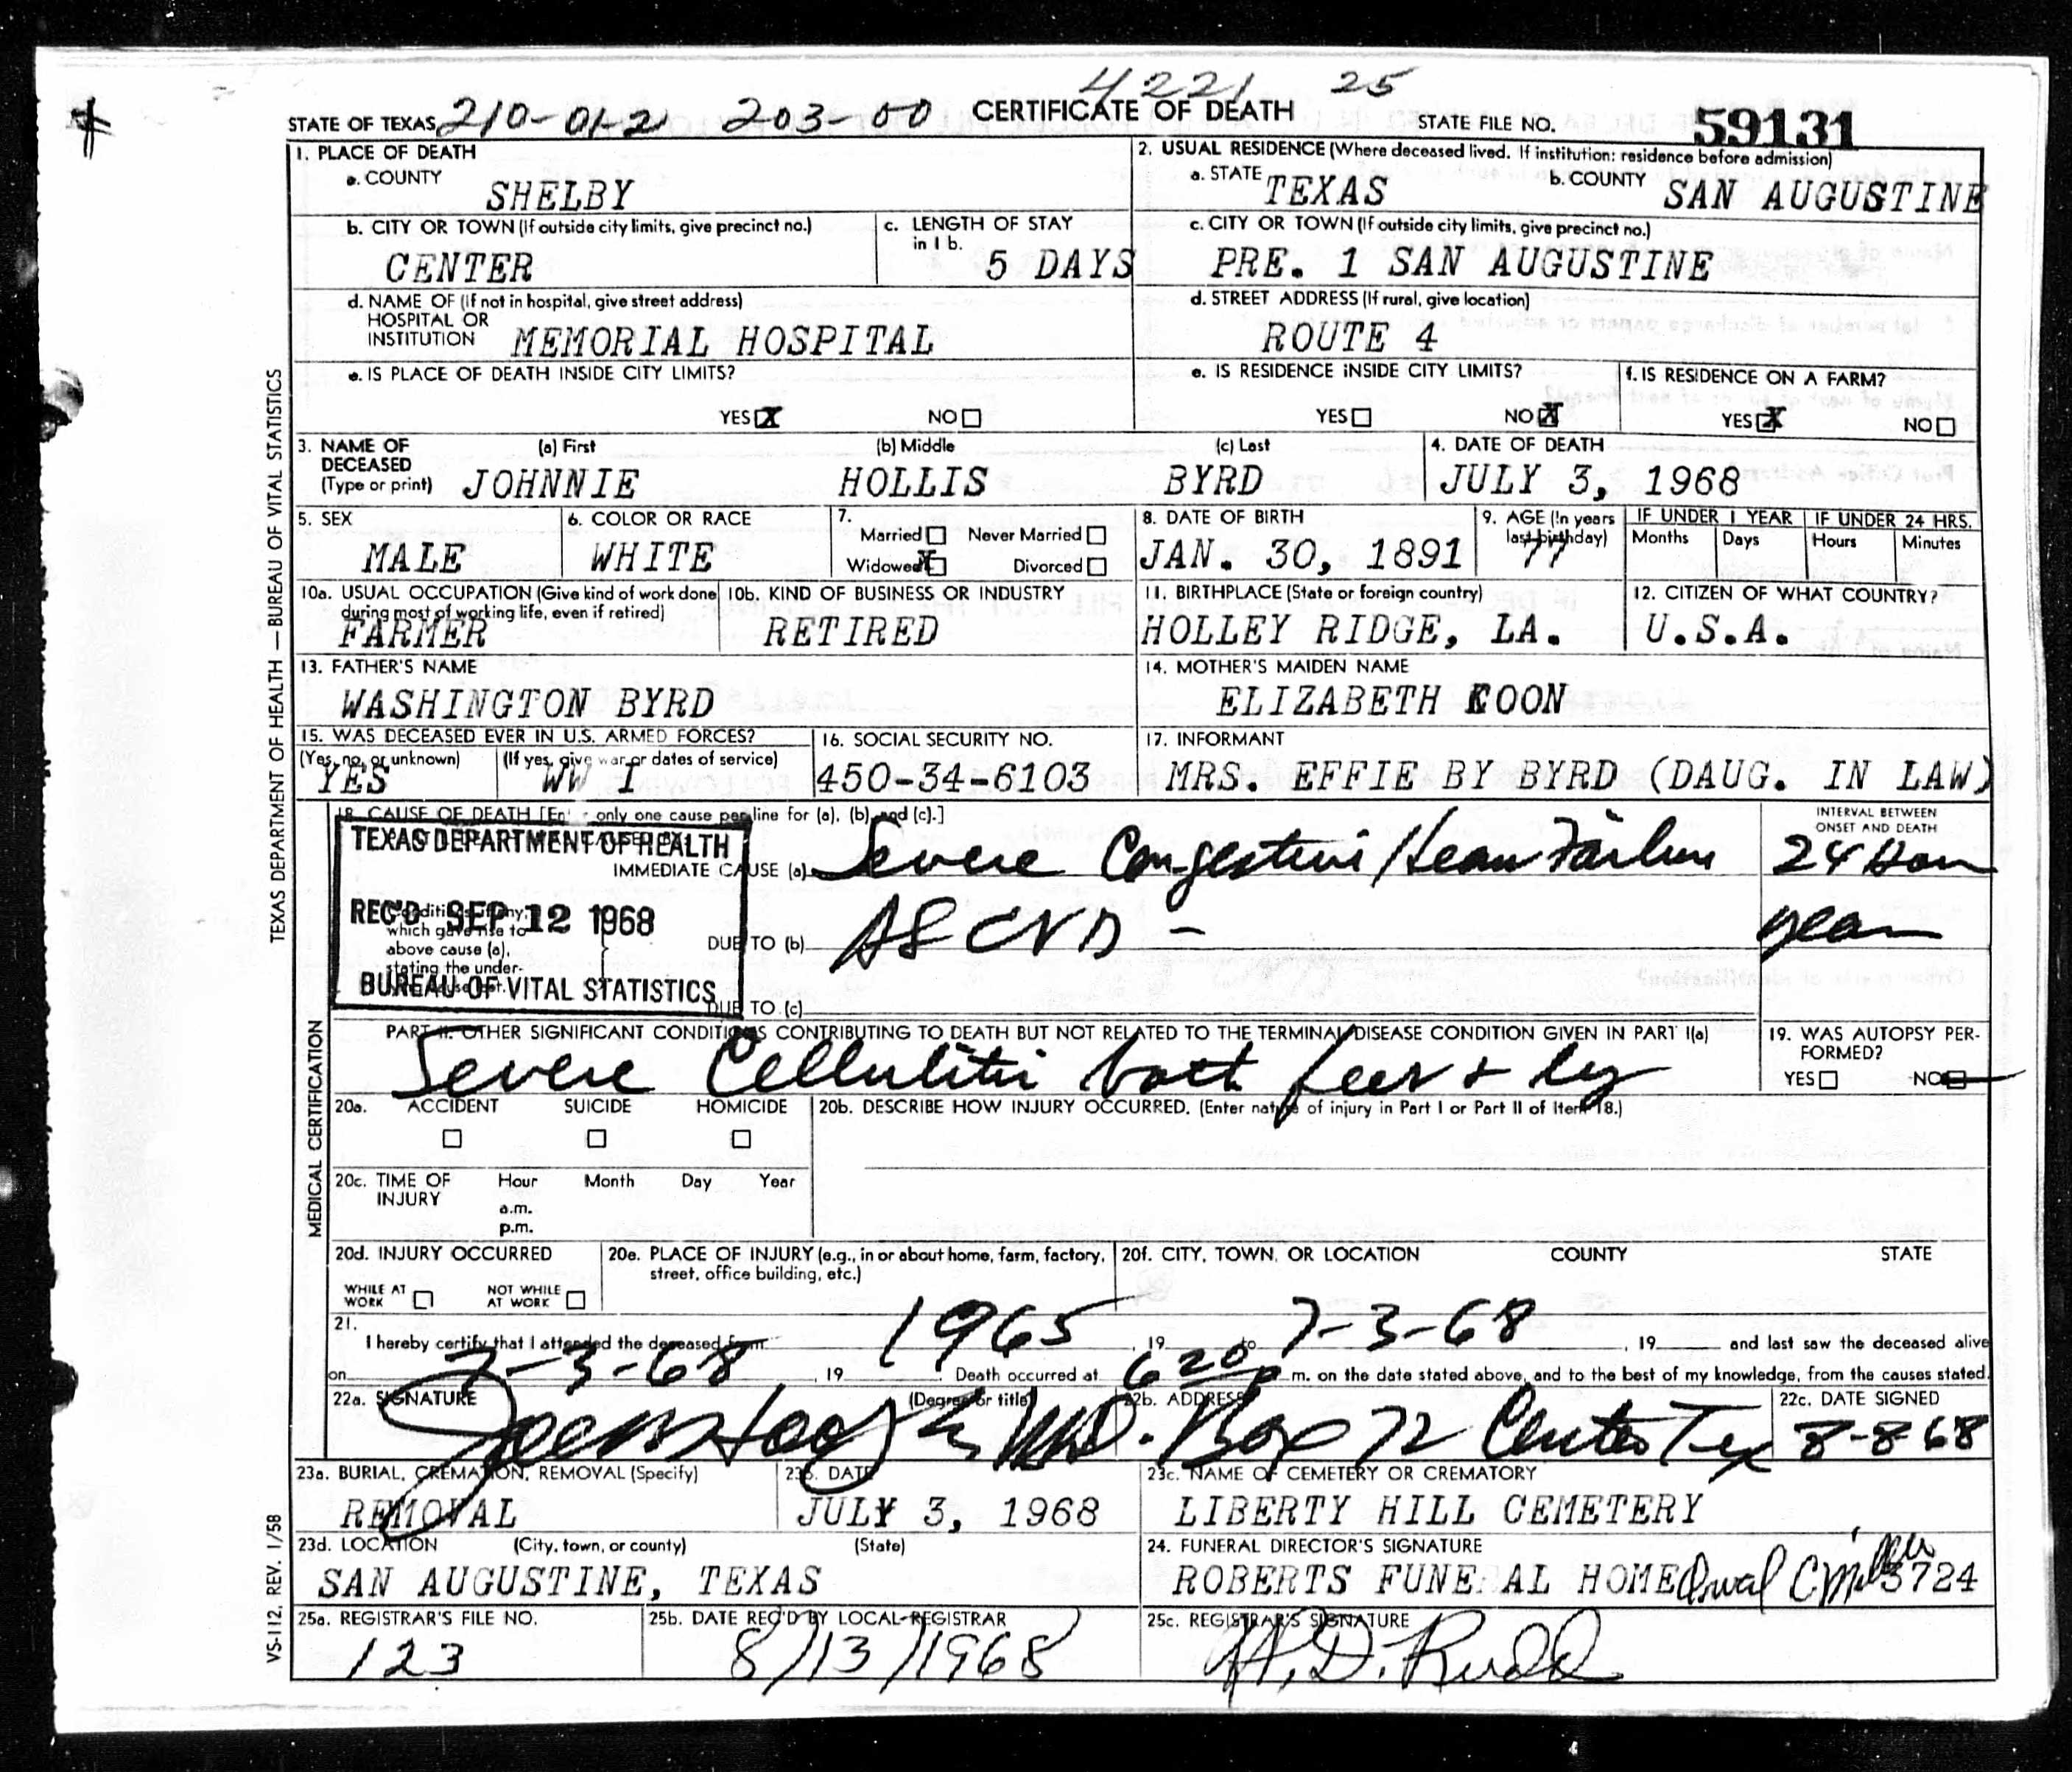 4221 25
STATE OF TEXAS 210-01-2 203-00 CERTIFICATE OF DEATH STATE FILE NO. 59131
1. PLACE OF DEATH
a. COUNTY SHELBY
2. USUAL RESIDENCE (Where deceased lived. If institution: residence before admission)
a. STATE TEXAS b. COUNTY SAN AUGUSTINE
b. CITY OR TOWN (If outside city limits, give precinct no.)
CENTER
c. LENGTH OF STAY in 1 b.
5 DAYS
c. CITY OR TOWN (If outside city limits, give precinct no.)
PRE. 1 SAN AUGUSTINE
d. NAME OF (If not in hospital, give street address)
HOSPITAL OR
INSTITUTION MEMORIAL HOSPITAL
d. STREET ADDRESS (If rural, give location)
ROUTE 4
e. IS PLACE OF DEATH INSIDE CITY LIMITS?
YES X NO
e. IS RESIDENCE INSIDE CITY LIMITS?
YES NO X
f. IS RESIDENCE ON A FARM?
YES X NO
3. NAME OF DECEASED (Type or print)
(a) First (b) Middle (c) Last
JOHNNIE HOLLIS BYRD
4. DATE OF DEATH
JULY 3, 1968
5. SEX
MALE
6. COLOR OR RACE
WHITE
7.
Married Never Married
Widowed X Divorced
8. DATE OF BIRTH
JAN. 30, 1891
9. AGE (In years last birthday)
77
IF UNDER 1 YEAR IF UNDER 24 HRS.
Months Days Hours Minutes
10a. USUAL OCCUPATION (Give kind of work done
during most of working life, even if retired)
FARMER
10b. KIND OF BUSINESS OR INDUSTRY
RETIRED
11. BIRTHPLACE (State or foreign country)
HOLLEY RIDGE, LA.
12. CITIZEN OF WHAT COUNTRY?
U.S.A.
13. FATHER'S NAME
WASHINGTON BYRD
14. MOTHER'S MAIDEN NAME
ELIZABETH KOON
15. WAS DECEASED EVER IN U.S. ARMED FORCES?
(Yes, no, or unknown) (If yes, give war or dates of service)
YES WW I
16. SOCIAL SECURITY NO.
450-34-6103
17. INFORMANT
MRS. EFFIE BY BYRD (DAUG. IN LAW)
18. CAUSE OF DEATH [Enter only one cause per line for (a), (b), and (c).]
INTERVAL BETWEEN
ONSET AND DEATH
TEXAS DEPARTMENT OF HEALTH
REC'D SEP 12 1968
BUREAU OF VITAL STATISTICS
IMMEDIATE CAUSE (a) Severe Congestive Heart Failure 24 Hour
Conditions, if any,
which gave rise to
above cause (a),
stating the under-
DUE TO (b) ASCVD - years
DUE TO (c)
PART II. OTHER SIGNIFICANT CONDITIONS CONTRIBUTING TO DEATH BUT NOT RELATED TO THE TERMINAL DISEASE CONDITION GIVEN IN PART I(a)
Severe Cellulitis both feet & leg
19. WAS AUTOPSY PER-
FORMED?
YES NO
20a. ACCIDENT SUICIDE HOMICIDE
20b. DESCRIBE HOW INJURY OCCURRED. (Enter nature of injury in Part I or Part II of Item 18.)
20c. TIME OF INJURY Hour Month Day Year
a.m.
p.m.
20d. INJURY OCCURRED
WHILE AT WORK NOT WHILE AT WORK
20e. PLACE OF INJURY (e.g., in or about home, farm, factory,
street, office building, etc.)
20f. CITY, TOWN, OR LOCATION COUNTY STATE
21.
I hereby certify that I attended the deceased from 1965, 19 to 7-3-68, 19 and last saw the deceased alive
on 7-3-68, 19 . Death occurred at 620 p m. on the date stated above, and to the best of my knowledge, from the causes stated.
22a. SIGNATURE (Degree or title)
MD.
22b. ADDRESS
Box 72 Center Tex
22c. DATE SIGNED
8-8-68
23a. BURIAL, CREMATION, REMOVAL (Specify)
REMOVAL
23b. DATE
JULY 3, 1968
23c. NAME OF CEMETERY OR CREMATORY
LIBERTY HILL CEMETERY
23d. LOCATION (City, town, or county) (State)
SAN AUGUSTINE, TEXAS
24. FUNERAL DIRECTOR'S SIGNATURE
ROBERTS FUNERAL HOME 3724
25a. REGISTRAR'S FILE NO.
123
25b. DATE REC'D BY LOCAL REGISTRAR
8/13/1968
25c. REGISTRAR'S SIGNATURE
H. D. Rudd
TEXAS DEPARTMENT OF HEALTH — BUREAU OF VITAL STATISTICS
MEDICAL CERTIFICATION
VS-112, REV. 1/58